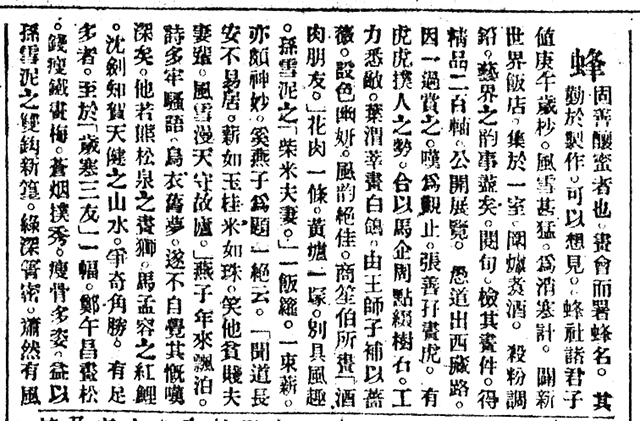 蜂固善釀蜜者也。畫會而署蜂名。其
勤於製作。可以想見。蜂社諸君子
值庚午歲杪。風雪甚猛。爲消寒計。闢新
世界飯店。集於一室。圍爐煑酒。殺粉調
鉛。藝界之韵事盛矣。閱旬。檢其畫件。得
精品二百軸。公開展覽。愚道出西藏路。
因一過賞之。嘆爲觀止。張善孖畫虎。有
虎虎撲人之勢。合以馬企周點綴樹石。工
力悉敵。葉渭莘畫白鴿。由王師子補以薔
薇。設色幽妍。風韵絕佳。商笙伯所畫「酒
肉朋友。」花肉一條。黃壚一塚。別具風趣
。孫雪泥之「柴米夫妻。」一飯籮。一束薪。
亦頗神妙。奚燕子爲題一絕云。「聞道長
安不易居。薪如玉桂米如珠。笑他貧賤夫
妻躍。風雪漫天守故廬。」燕子年來飄泊。
詩多牢騷語。烏衣舊夢。遂不自覺其慨嘆
深矣。他若熊松泉之畫獅。馬孟容之紅鯉
。沈劍知賀天健之山水。爭奇角勝。有足
多者。至於「歲寒三友」一幅。鄭午昌畫松
。錢瘦鐵畫梅。蒼烟撲秀。瘦骨多姿。益以
孫雪泥之雙鈎新篁。綠深箐密。蕭然有風